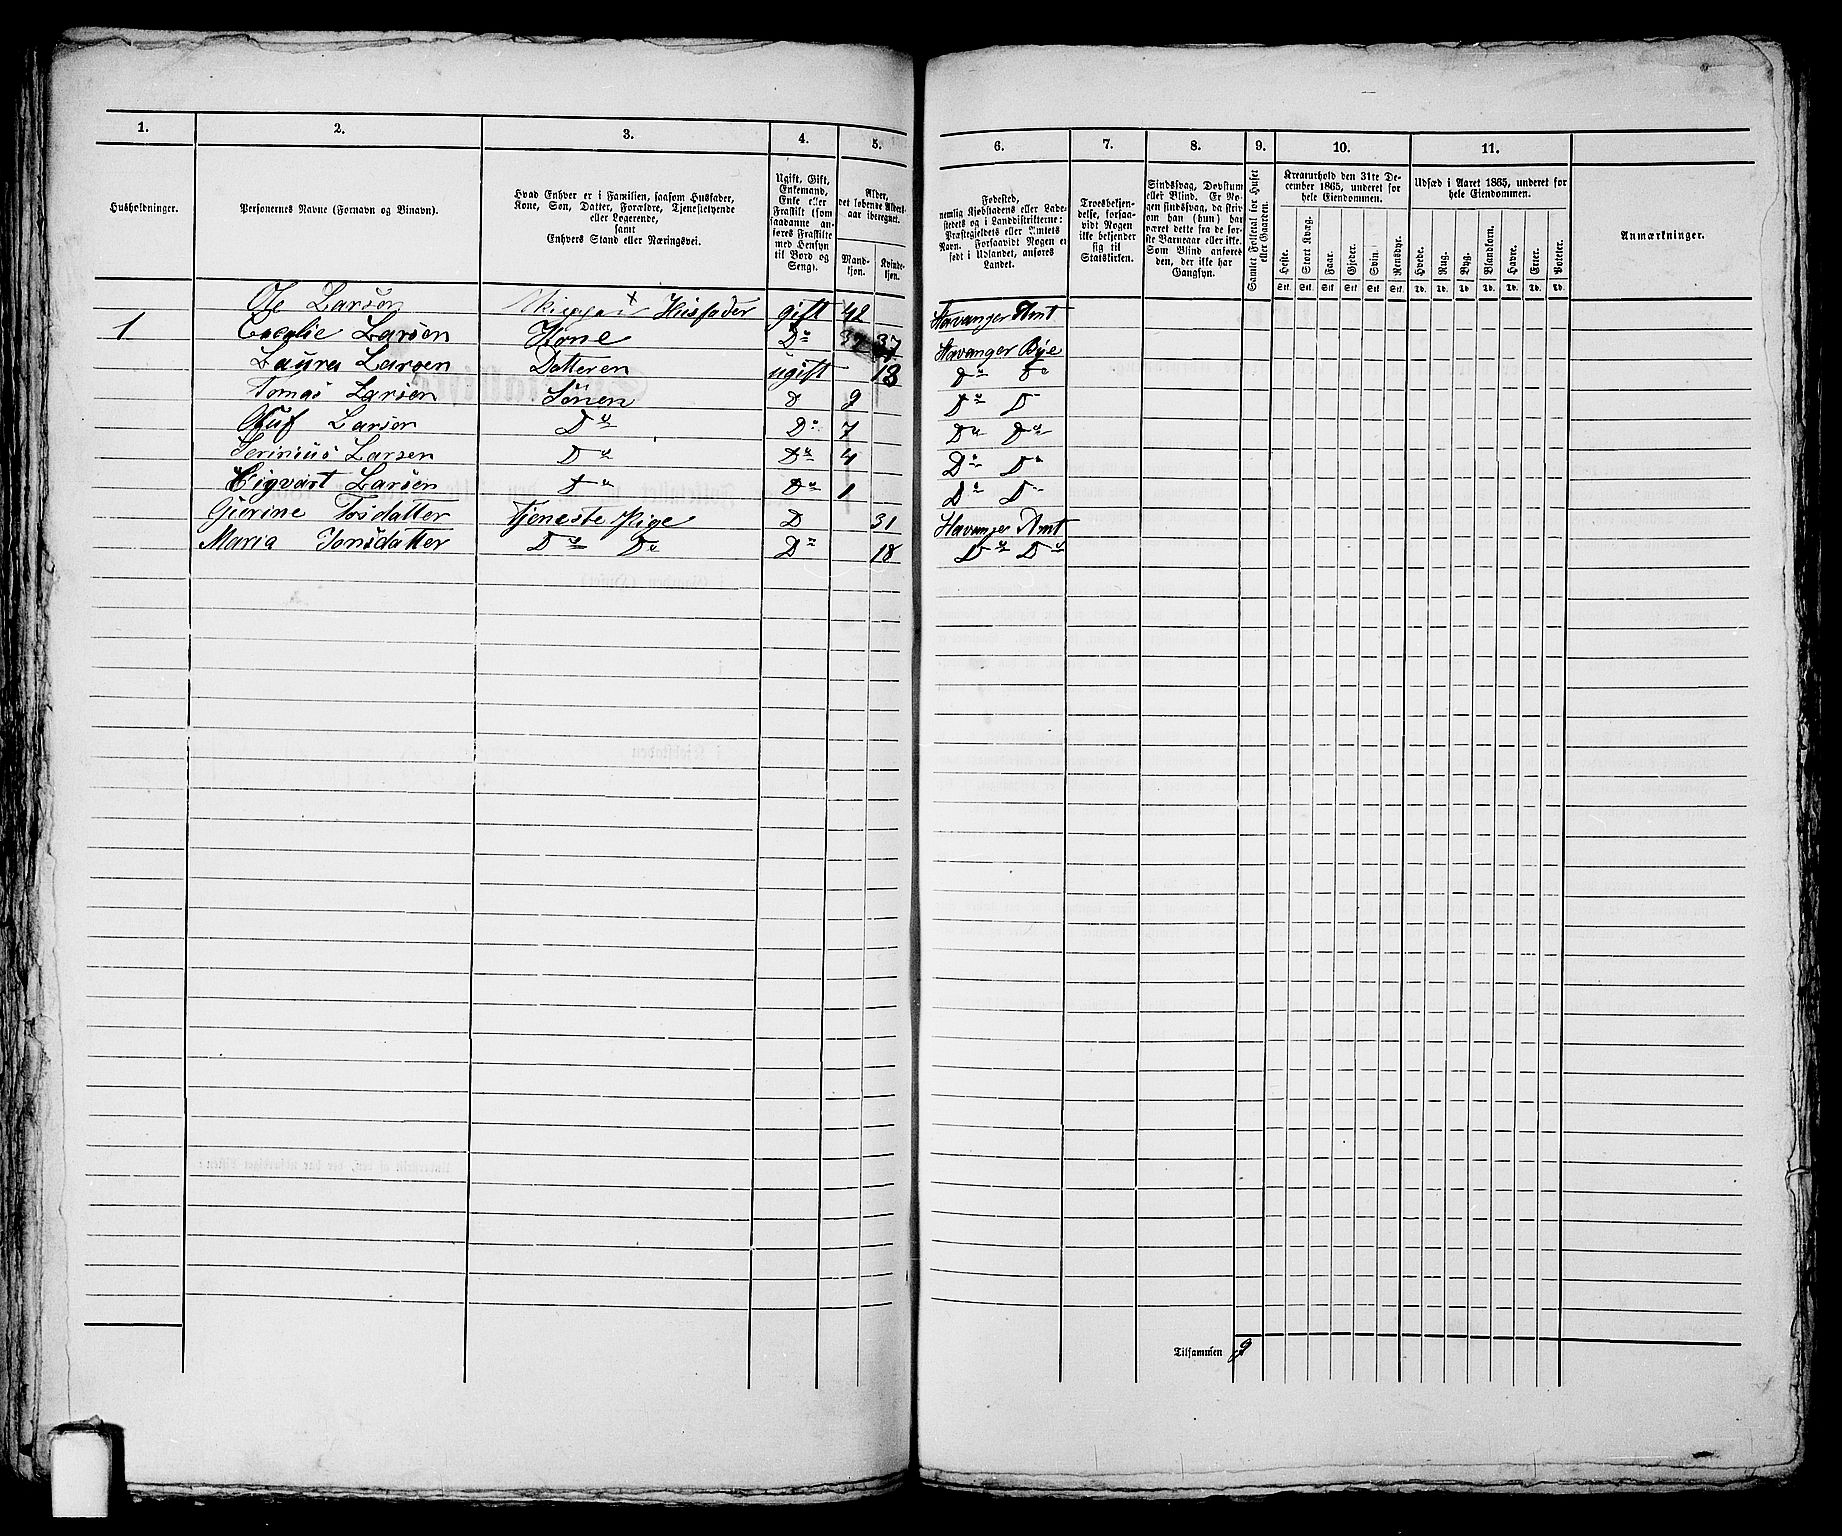 1. 2. 3. 4. 5. 6. 7. 8. 9. 10. 11.
Husholdninger.
Personernes Navne (Fornavn og Binavn).
Hvad Enhver er i Familien, saasom Husfader,
Kone, Søn, Datter, Forældre, Tjenestetyende
eller Logerende,
samt
Enhvers Stand eller Næringsvei.
Ugift, Gift,
Enkemand,
Enke eller
Fraskilt (som
saadanne an-
føres Fraskilte
med Hensyn
til Bord og
Seng).
Alder,
det løbende Alders-
aar iberegnet.
Mand-
kjøn.
Kvinde-
kjøn.
Fødested,
nemlig Kjøbstadens eller Lade-
stedets og i Landdistrikterne:
Præstegjeldets eller Amtets
Navn. Forsaavidt Nogen er
født i Udlandet, anføres
Landet.
Troesbekjen-
delse, forsaa-
vidt Nogen
ikke bekjender
sig til
Statskirken.
Sindssvag, Døvstum
eller Blind. Er No-
gen sindssvag, da skriv
om han (hun) har
været dette fra de før-
ste Barneaar eller ikke.
Som Blind anføres
den, der ikke har
Gangsyn.
Samlet Folketal for Huset
eller Gaarden.
Kreaturhold den 31te De-
cember 1865, underet for
hele Eiendommen.
Heste. Stort Kvæg. Faar. Gjeder. Svin. Rensdyr.
Stk. Stk. Stk. Stk. Stk. Stk.
Udsæd i Aaret 1865, underet for
hele Eiendommen.
Hvede. Rug. Byg. Blandkorn. Havre. Erter. Poteter.
Td. Td. Td. Td. Td. Td. Td.
Anmærkninger.
Ole Larsen Skipper Husfader gift 42 Stavanger Amt
1 Cecelie Larsen Kone Do 37 37 Stavanger Bye
Laura Larsen Datteren ugift 13 Do Do
Tomas Larsen Sönen D 9 Do D
Oluf Larsen Do Do 7 Do Do
Serinius Larsen Do Do 4 Do Do
Sigvart Larsen Do Do 1 Do Do
Gurine Tosdatter Tjeneste Pige D 31 Stavanger Amt
Maria Jonsdatter Do Do Do 18 Do Do
Tilsammen 9